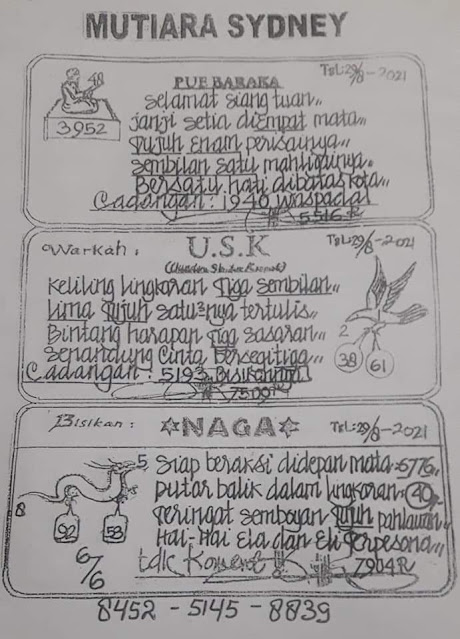 MUTIARA SYDNEY
PUE BARAKA
Tgl: 29/8-2021
48
3952
Selamat siang tuan,,
janji setia diEmpat mata,,
Tujuh Enam perisainya,,
sembilan satu mahligainya,,
Bersatu hati dibatas kota,,
Cadangan: 1940 waspada!
5516 R
Warkah:
U.S.K
Tgl: 29/8-2021
Keliling lingkaran Tiga sembilan,,
Lima Tujuh satu²nya tertulis,,
Bintang harapan Tiga sasaran,,
Senandung Cinta Bersegitiga,,
Cadangan: 5193
7509 R
2
38 61
Bisikan:
NAGA
Tgl: 29/8-2021
5
8
92 58
6/6
Siap beraksi didepan mata: 6776,,
Putar balik dalam lingkaran: 40,,
Teringat semboyan Tujuh pahlawan,,
Hai-Hai Ela dan Eli Terpesona,,
tdk Koment !!
7904 R
8452 - 5145 - 8839